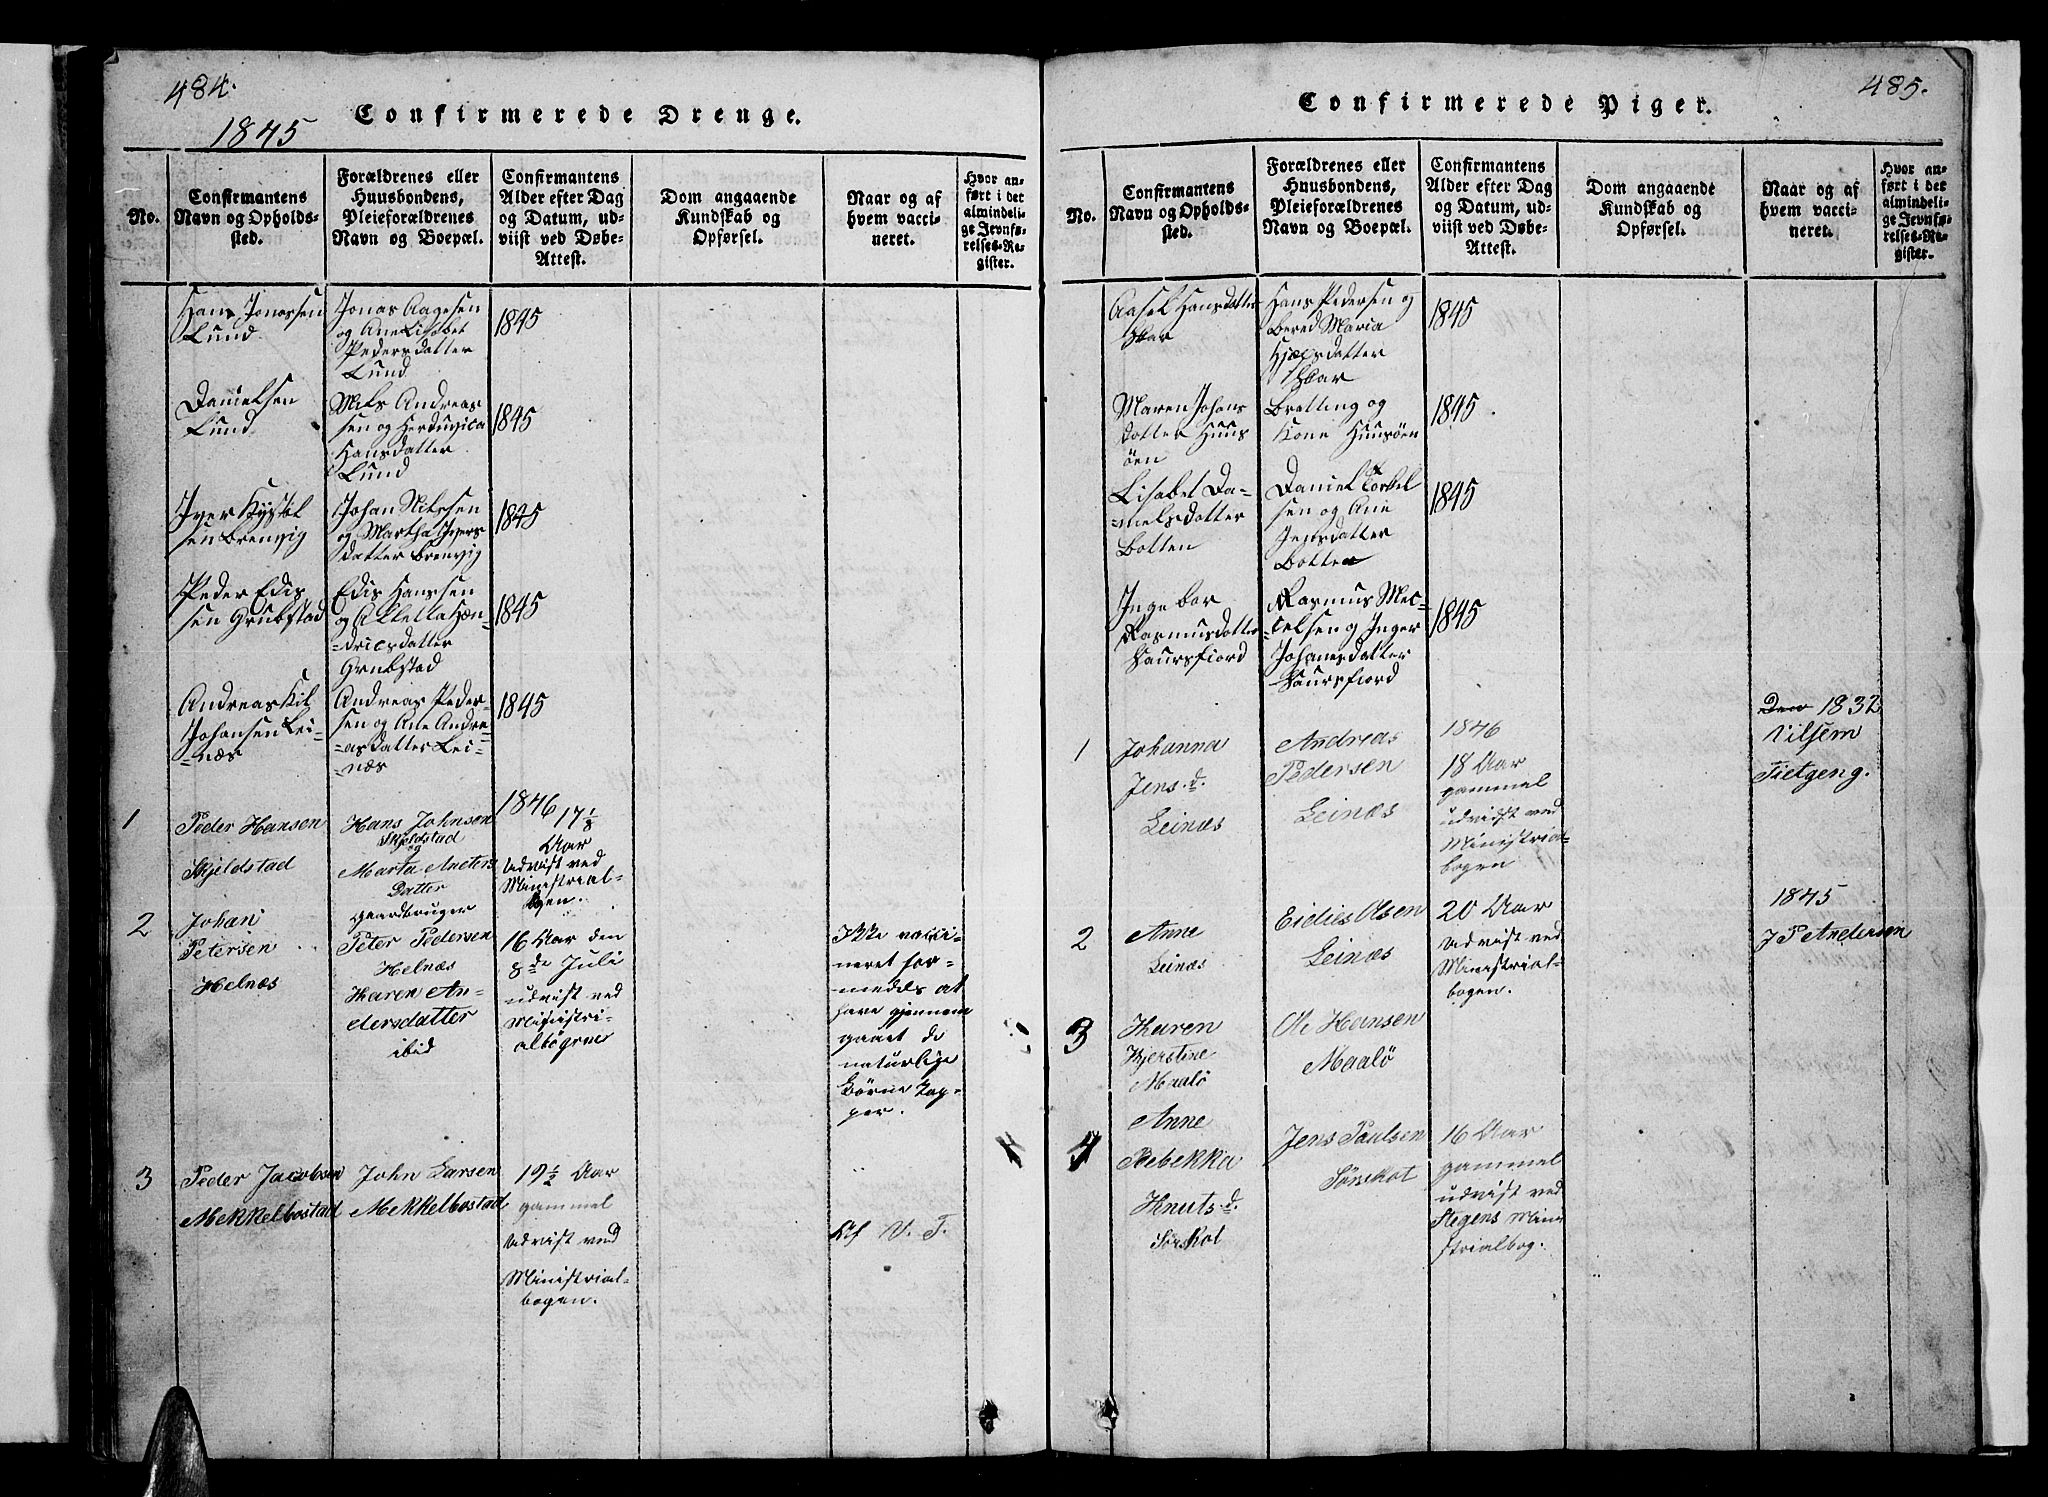 484.
1845
Confirmerede Drenge.
No.
Confirmantens
Navn og Opholds-
sted.
Forældrenes eller
Huusbondens,
Pleieforældrenes
Navn og Boepæl.
Confirmantens
Alder efter Dag
og Datum, ud-
viist ved Døbe-
Attest.
Dom angaaende
Kundskab og
Opførsel.
Naar og af
hvem vacci-
neret.
Hvor an-
ført i det
almindeli-
ge Jevnfø-
relses-Re-
gister.
Hans Jonassen
Lund
Jonas Aagesen
og Ane Lisabet
Pedersdatter
Lund
1845
Danielsen
Lund
Nils Andreas
sen og
Hansdatter
Lund
1845
Iver Kystil
sen Brenvig
Johan Nilssen
og Martha Ivers
datter Brenvig
1845
Peder Edis
sen Grubstad
Edis Hanssen
og Alletta Hæn-
=dricsdatter
Grubstad
1845
Andreas Kil
Johansen Lei-
=næs
Andreas Peder-
sen og Ane Andre-
=asdatter Lei-
=næs
1845
1846
1
Peder Hansen
Skjeldstad
Hans Johnsen
Skjeldstad
og
Marta Aneters
Datter
gaardbruger
17 1/8
Aar
udvist ved
Ministrial-
bogen.
2
Johan
Petersen
Helnæs
Peter Pedersen
Helnæs
Karen An-
dersdatter
ibid
16 Aar den
8de Juli
udvist ved
Ministri-
albogen
Ikke vacci-
neret for-
medels at
have gjennem
gaaet de
naturlige
Børne kop-
per.
3
Peder Jacobsen
Mekkelbostad
John Larsen
Mekkelbostad
19 1/2 Aar
gammel
udvist ved
Ministrial-
bogen.
Af V. T.
485.
Confirmerede Piger.
No.
Confirmantens
Navn og Opholds-
sted.
Forældrenes eller
Huusbondens,
Pleieforældrenes
Navn og Boepæl.
Confirmantens
Alder efter Dag
og Datum, ud-
viist ved Døbe-
Attest.
Dom angaaende
Kundskab og
Opførsel.
Naar og af
hvem vacci-
neret.
Hvor an-
ført i det
almindeli-
ge Jevnfø-
relses-Re-
gister.
Aasel Hansdatter
Skar
Hans Pedersen og
Bered Maria
datter
Skar
1845
Maren Johans
datter Huus
öen
Bratting og
Kone Huusöen
1845
Lisabet Da-
=nielsdatter
Botten
Daniel Torkel
sen og Ane
Jensdatter
Botten
1845
Ingebor
Rasmusdatter
Saursfiord
Rasmus Mec-
=kelsen og Inger
Johanesdatter
Saursfiord
1845
1
Johanna
Jens.d.
Leinæs
Andreas
Pedersen
Leinæs
1846
18 Aar
gammel
udvidst ved
Ministrial-
bogen
Den 1832
Vilsem
Tietgeng.
2
Anne
Leinæs
Eidies Olsen
Leinæs
20 Aar
udvist ved
Ministrial-
bogen.
1845
J P Andersen
3
Karen
Kjerstine
Maalö
Ole Hansen
Maalö
4
Anne
Rebekka
Knuts.d.
Sörskot
Jens Paulsen
Sörskot
16 Aar
gammel
udvist ved
Stegens Mini
strialbog.